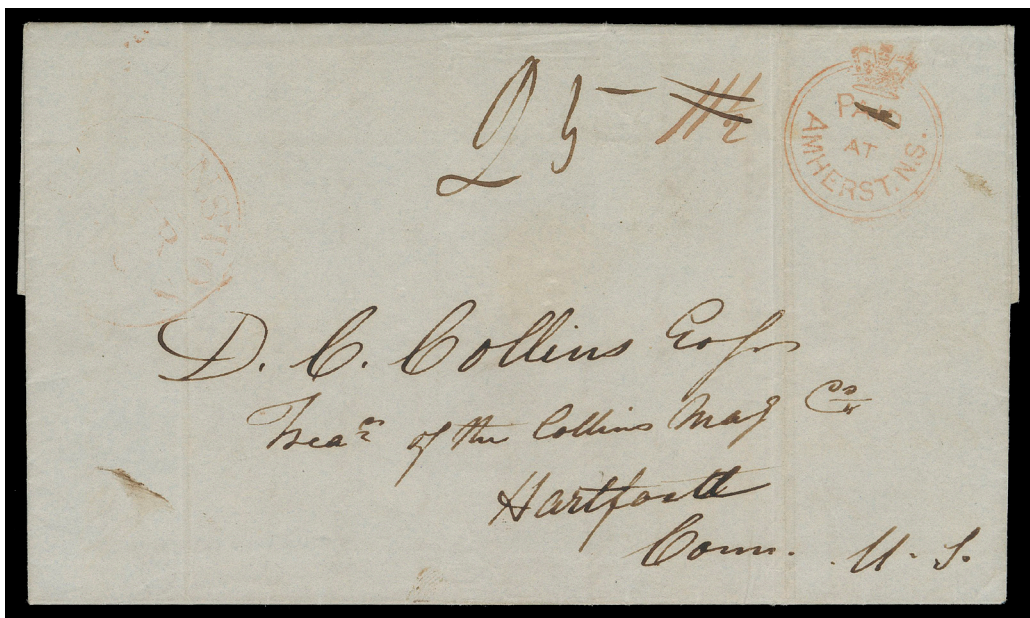 25
PAID
AT
AMHERST. N.S.
D. C. Collins Esqr
Treasr of the Collins Maf Co
Hartford
Conn. U. S.